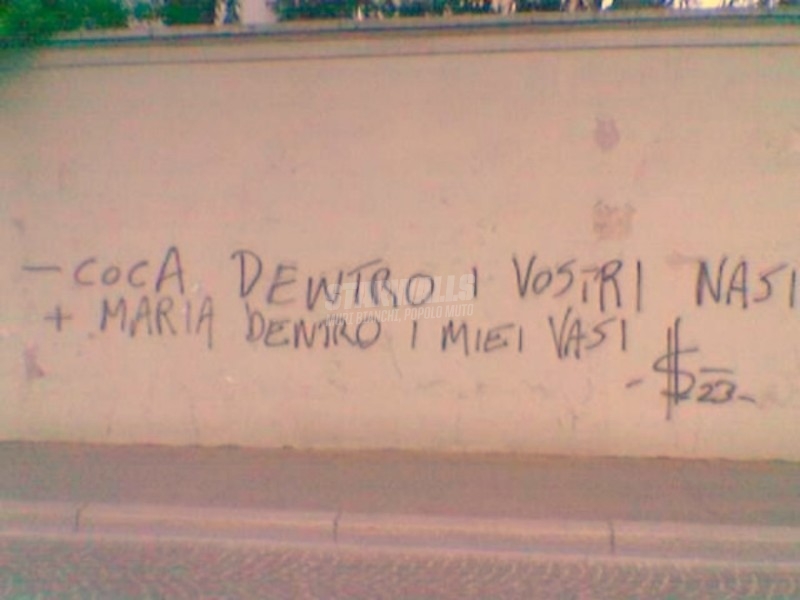 - COCA DENTRO I VOSTRI NASI
+ MARIA DENTRO I MIEI VASI
- $23 -
STICKWALLS
MURI BIANCHI, POPOLO MUTO